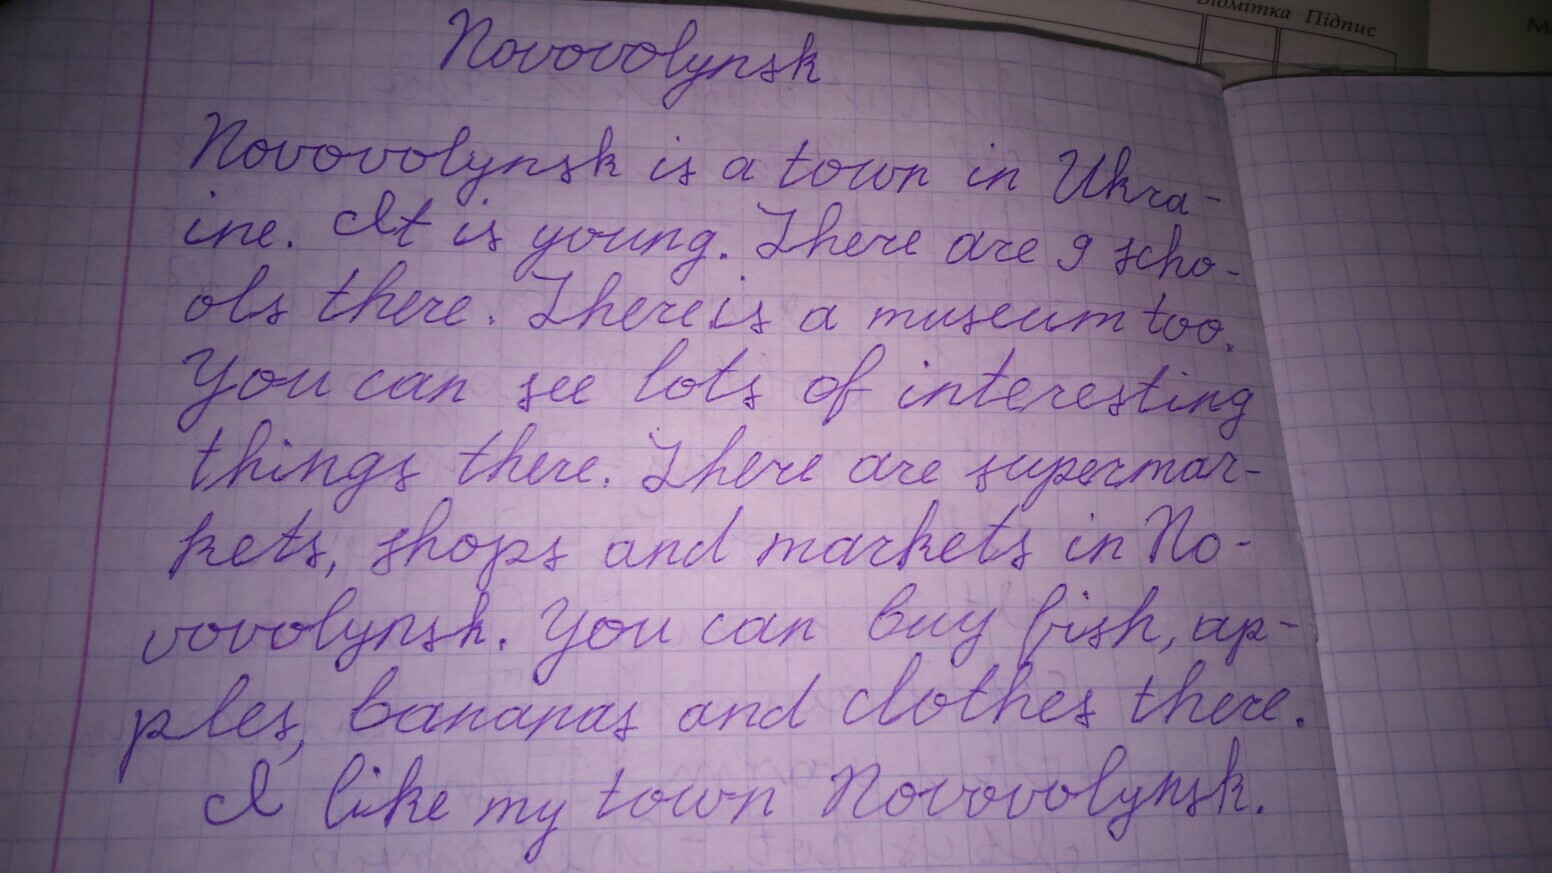 Відмітка Підпис
М
Novovolynsk
Novovolynsk is a town in Ukra-
ine. It is young. There are 9 scho-
ols there. There is a museum too.
You can see lots of interesting
things there. There are supermar-
kets, shops and markets in No-
vovolynsk. You can buy fish, ap-
ples, bananas and clothes there.
I like my town Novovolynsk.